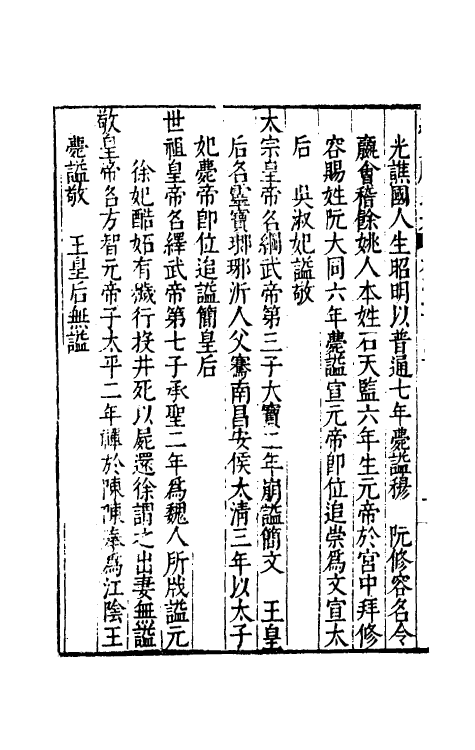 光譙國人生昭明以普通七年薨謚穆　阮修容名令
嬴會稽餘姚人本姓石天監六年生元帝於宮中拜修
容賜姓阮大同六年薨謚宣元帝卽位追崇爲文宣太
后　吳淑妃謚敬
太宗皇帝名綱武帝第三子大寶二年崩謚簡文　王皇
后名靈寶瑯琊沂人父騫南昌安侯太清三年以太子
妃薨帝卽位追謚簡皇后
世祖皇帝名繹武帝第七子承聖二年爲魏人所戕謚元
徐妃酷妬有穢行投井死以屍還徐謂之出妻無謚
敬皇帝名方智元帝子太平二年禪於陳陳奉爲江陰王
薨謚敬　王皇后無謚